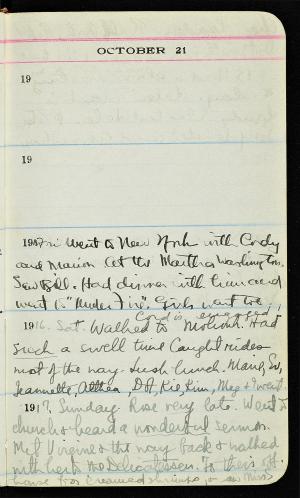 OCTOBER 21
19
19
1915 Fri Went to New York with Cordy
and Marion (at the Martha Washington.
Saw Bill. Had dinner with him and
went to "Under Fire". Girls went too,
Cord is engaged
1916. Sat. Walked to Mohonk. Had
such a swell time Caught rides
most of the way. Lush lunch. Marg, Su,
Jeannette, Althea, Dot, Kim, Meg & I went.
1917. Sunday. Rose very late. Went to
church & heard a wonderful sermon.
Met Virginia on the way back & walked
with her to the Delicatessen. To their
house for creamed shrimps, &